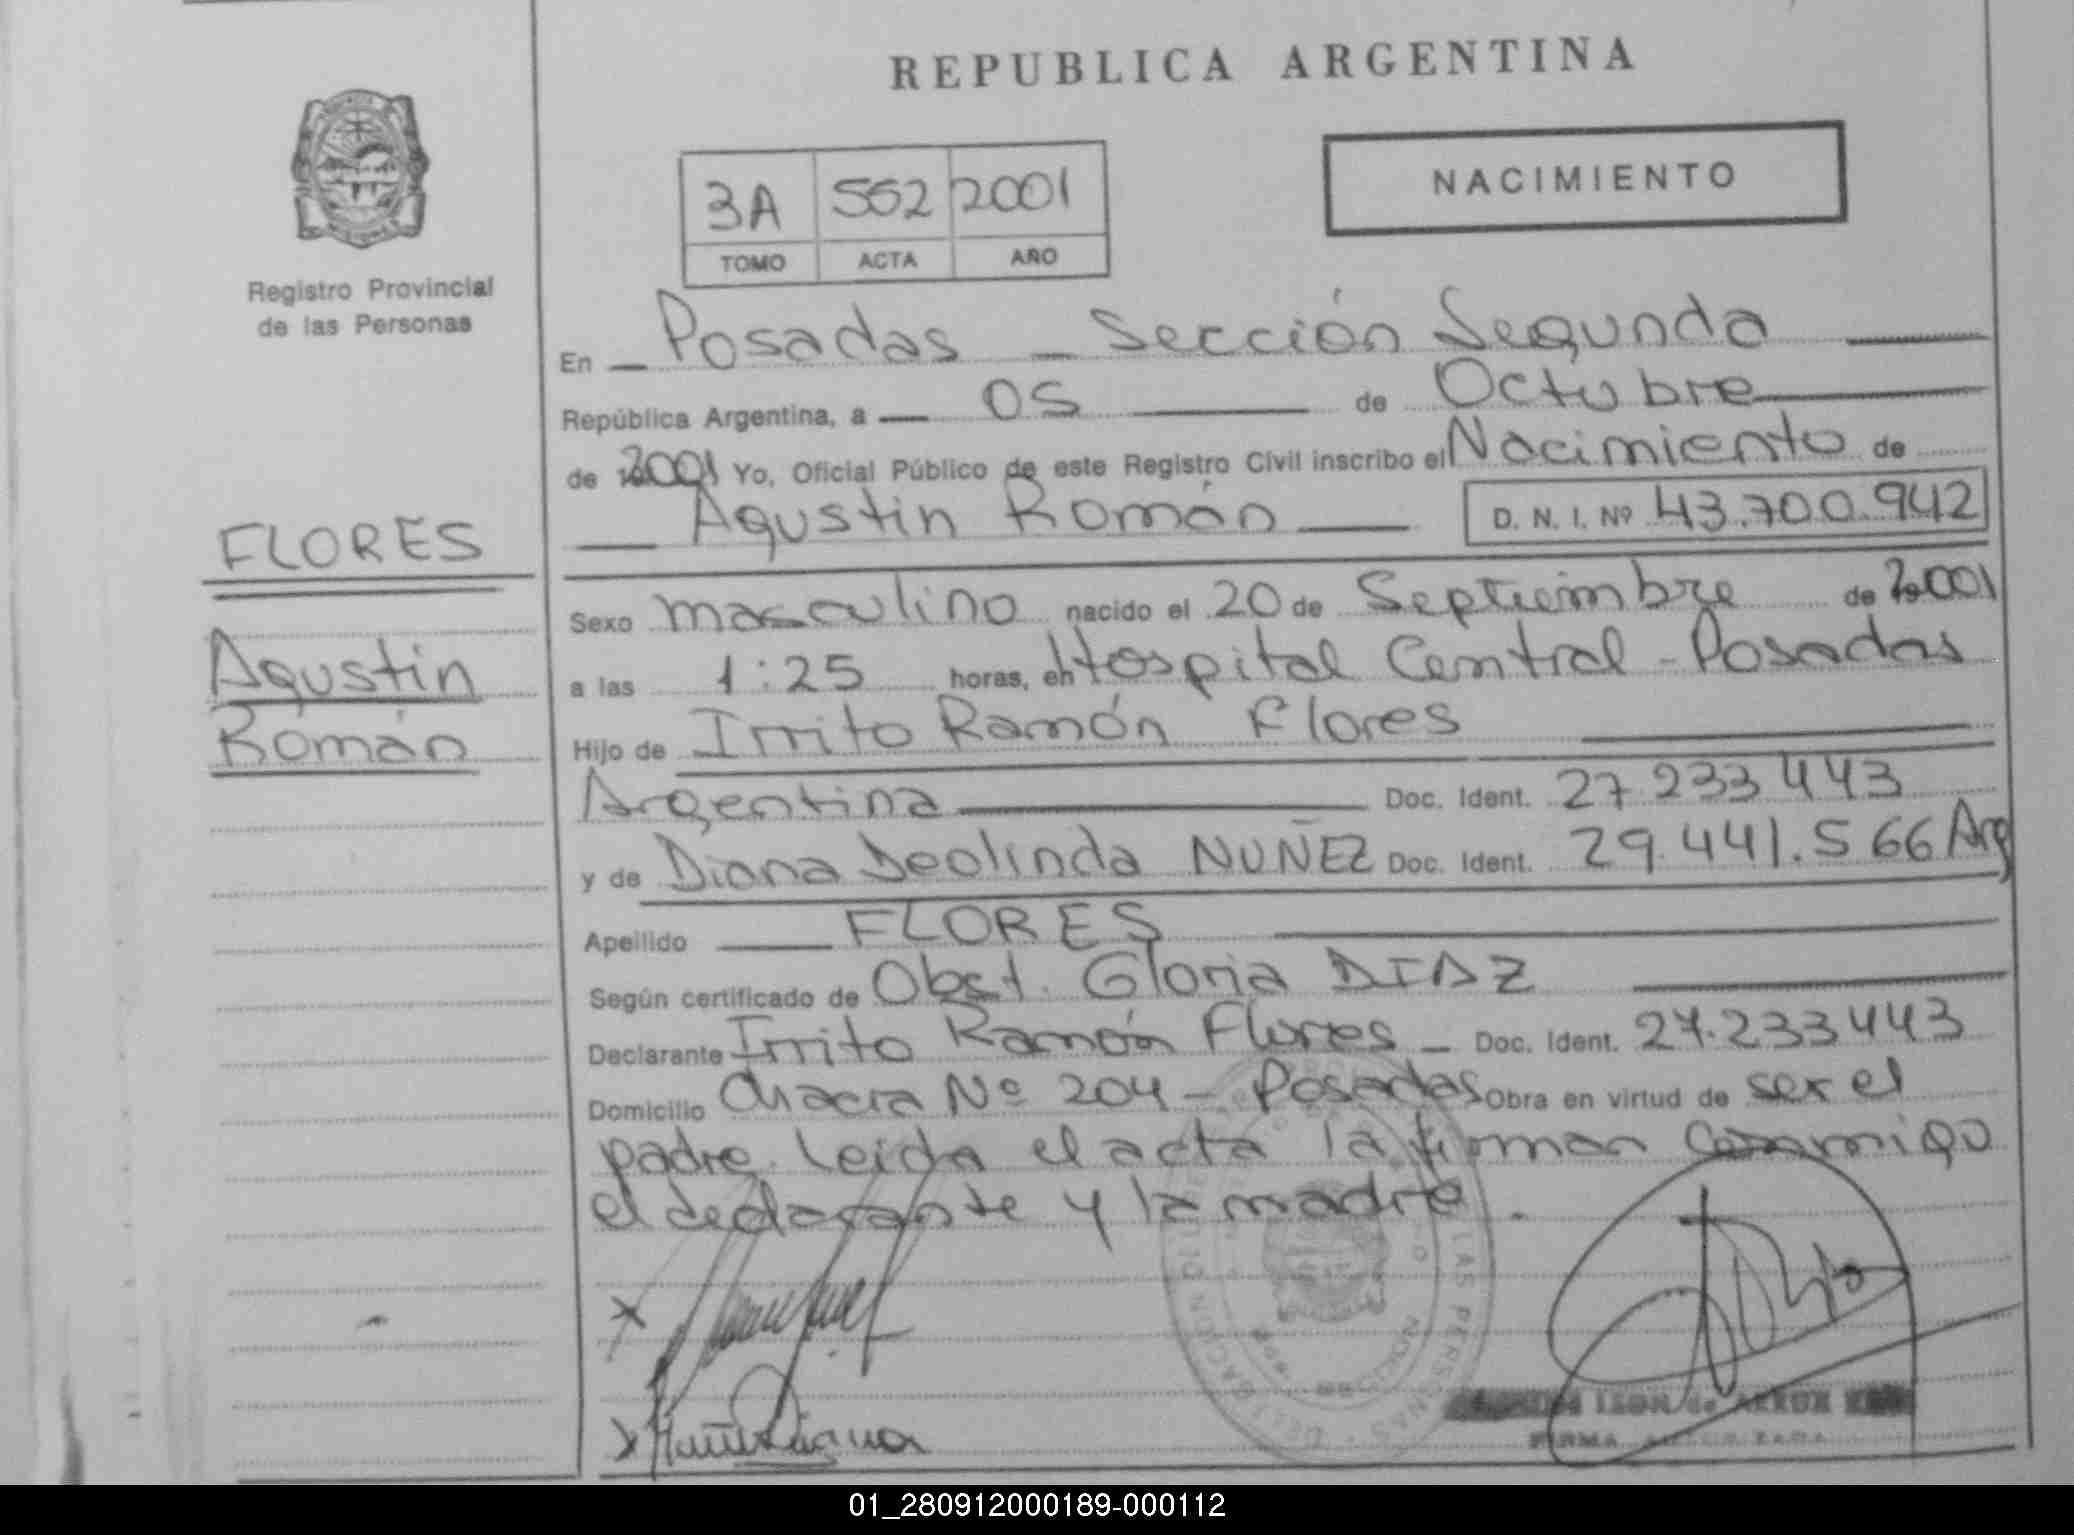 REPUBLICA ARGENTINA
NACIMIENTO
3A 552 2001
TOMO ACTA AÑO
Registro Provincial
de las Personas
En Posadas - Sección Segunda
República Argentina, a 05 de Octubre
de 2001 Yo, Oficial Público de este Registro Civil inscribo el Nacimiento de
Agustin Román D. N. I. Nº 43.700.942
FLORES
Agustin
Román
Sexo masculino nacido el 20 de Septiembre de 2001
a las 1:25 horas, en Hospital Central - Posadas
Hijo de Irrito Ramón Flores
Argentina Doc. Ident. 27.233.443
y de Diana Deolinda NUÑEZ Doc. Ident. 29.441.566 Arg
Apellido FLORES
Según certificado de Obst. Gloria DIAZ
Declarante Irrito Ramón Flores - Doc. Ident. 27.233443
Domicilio Chacra Nº 204 - Posadas Obra en virtud de ser el
padre. Leida el acta la firman conmigo
el declarante y la madre.
DELEGACION
LAS PERSONAS
LEON de
FIRMA
01_280912000189-000112